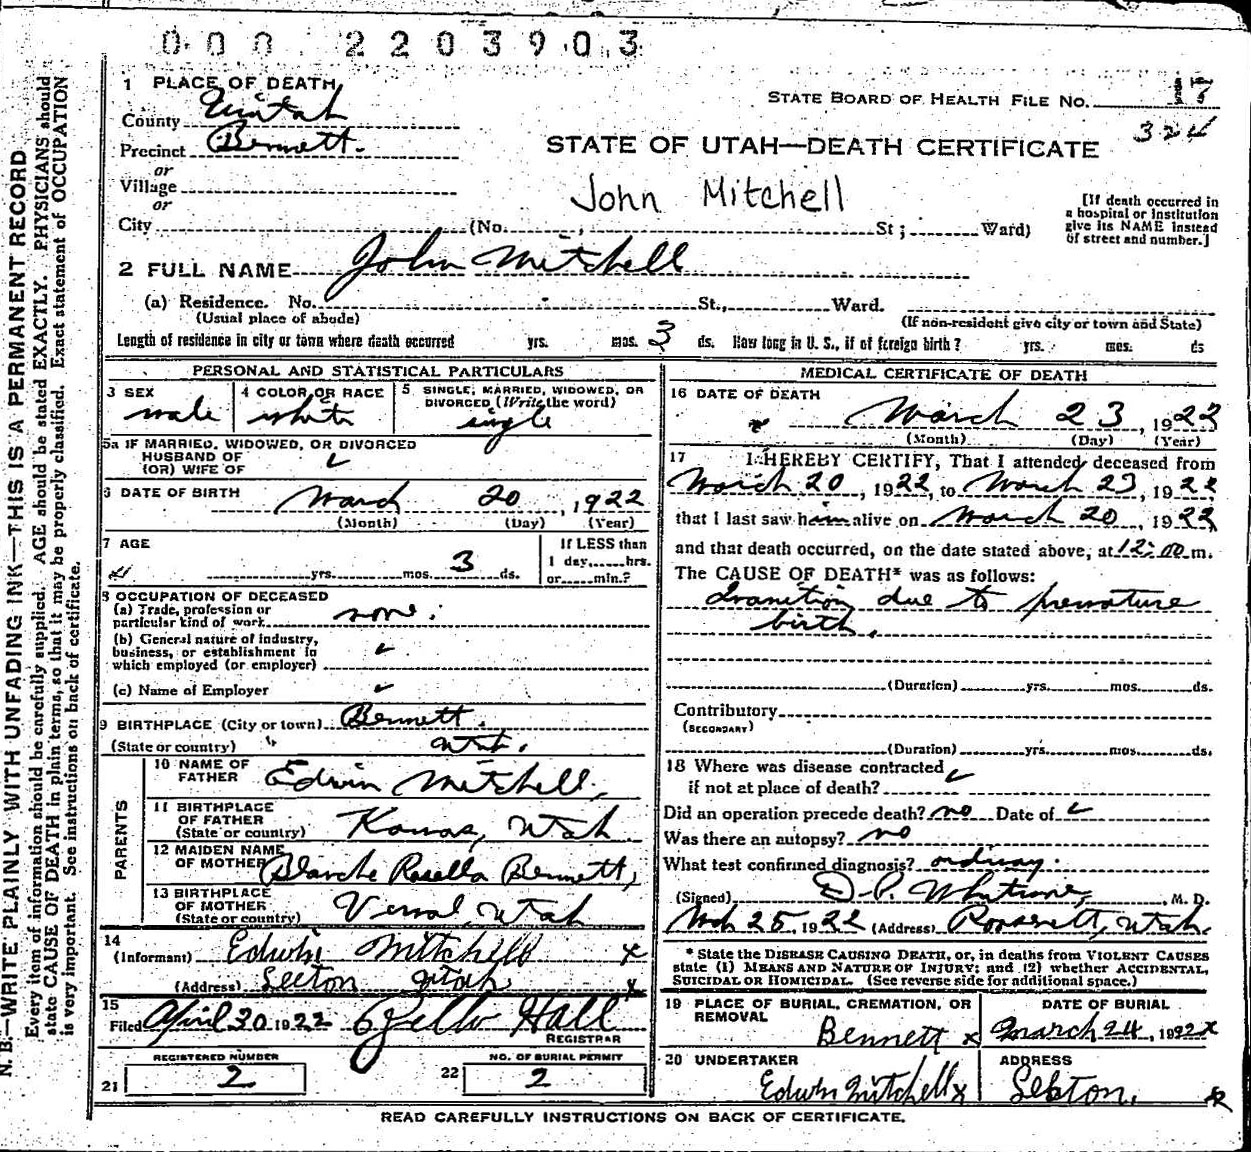 000 2203903
1 PLACE OF DEATH
County Uintah
Precinct Bennett.
or
Village
or
City (No. , St; Ward)
STATE BOARD OF HEALTH FILE No. 17
324
STATE OF UTAH—DEATH CERTIFICATE
John Mitchell
[If death occurred in
a hospital or institution
give its NAME instead
of street and number.]
2 FULL NAME John Mitchell
(a) Residence. No. St., Ward.
(Usual place of abode) (If non-resident give city or town and State)
Length of residence in city or town where death occurred yrs. mos. 3 ds. How long in U. S., if of foreign birth? yrs. mos. ds
PERSONAL AND STATISTICAL PARTICULARS
3 SEX male
4 COLOR OR RACE white
5 SINGLE, MARRIED, WIDOWED, OR
DIVORCED (Write the word)
single
5a IF MARRIED, WIDOWED, OR DIVORCED
HUSBAND OF
(OR) WIFE OF
6 DATE OF BIRTH March 20, 1922
(Month) (Day) (Year)
7 AGE yrs. mos. 3 ds.
If LESS than
1 day,......hrs.
or......min.?
8 OCCUPATION OF DECEASED
(a) Trade, profession or
particular kind of work none.
(b) General nature of industry,
business, or establishment in
which employed (or employer)
(c) Name of Employer
9 BIRTHPLACE (City or town) Bennett.
(State or country) Utah.
PARENTS
10 NAME OF
FATHER Edwin Mitchell,
11 BIRTHPLACE
OF FATHER
(State or country) Kamas, Utah
12 MAIDEN NAME
OF MOTHER Blanche Rosella Bennett,
13 BIRTHPLACE
OF MOTHER
(State or country) Vernal, Utah
14
(Informant) Edwin Mitchell x
(Address) Leeton Utah, x
15
Filed April 30 1922 Ozello Hall
REGISTRAR
REGISTERED NUMBER
21 2
NO. OF BURIAL PERMIT
22 2
MEDICAL CERTIFICATE OF DEATH
16 DATE OF DEATH
March 23, 1922
(Month) (Day) (Year)
17 I HEREBY CERTIFY, That I attended deceased from
March 20, 1922, to March 23, 1922
that I last saw him alive on March 20, 1922
and that death occurred, on the date stated above, at 12:00 m.
The CAUSE OF DEATH* was as follows:
Inanition due to premature
birth.
(Duration) yrs. mos. ds.
Contributory
(SECONDARY)
(Duration) yrs. mos. ds.
18 Where was disease contracted
if not at place of death?
Did an operation precede death? no Date of
Was there an autopsy? no
What test confirmed diagnosis? ordinary.
(Signed) D.P. Whitmore, M. D.
Mch 25, 1922 (Address) Roosevelt, Utah.
* State the DISEASE CAUSING DEATH, or, in deaths from VIOLENT CAUSES
state (1) MEANS AND NATURE OF INJURY; and (2) whether ACCIDENTAL,
SUICIDAL OR HOMICIDAL. (See reverse side for additional space.)
19 PLACE OF BURIAL, CREMATION, OR
REMOVAL
Bennett x
DATE OF BURIAL
March 24, 1922 x
20 UNDERTAKER
Edwin Mitchell x
ADDRESS
Leeton.
READ CAREFULLY INSTRUCTIONS ON BACK OF CERTIFICATE.
N. B.—WRITE PLAINLY WITH UNFADING INK—THIS IS A PERMANENT RECORD
Every item of information should be carefully supplied. AGE should be stated EXACTLY. PHYSICIANS should
state CAUSE OF DEATH in plain terms, so that it may be properly classified. Exact statement of OCCUPATION
is very important. See instructions on back of certificate.